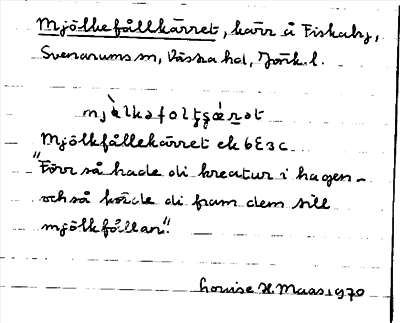 Mjölkefållkärret, kärr å Fiskaby,
Svenarums sn, Västra hd, Jönk. l.
mjèlkəfoltʂǽrət
Mjölkfållekärret ek 6E3c
"Förr så hade di kreatur i hagen -
och så körde di fram dem till
mjölkfållan".
Louise H. Maas, 1970